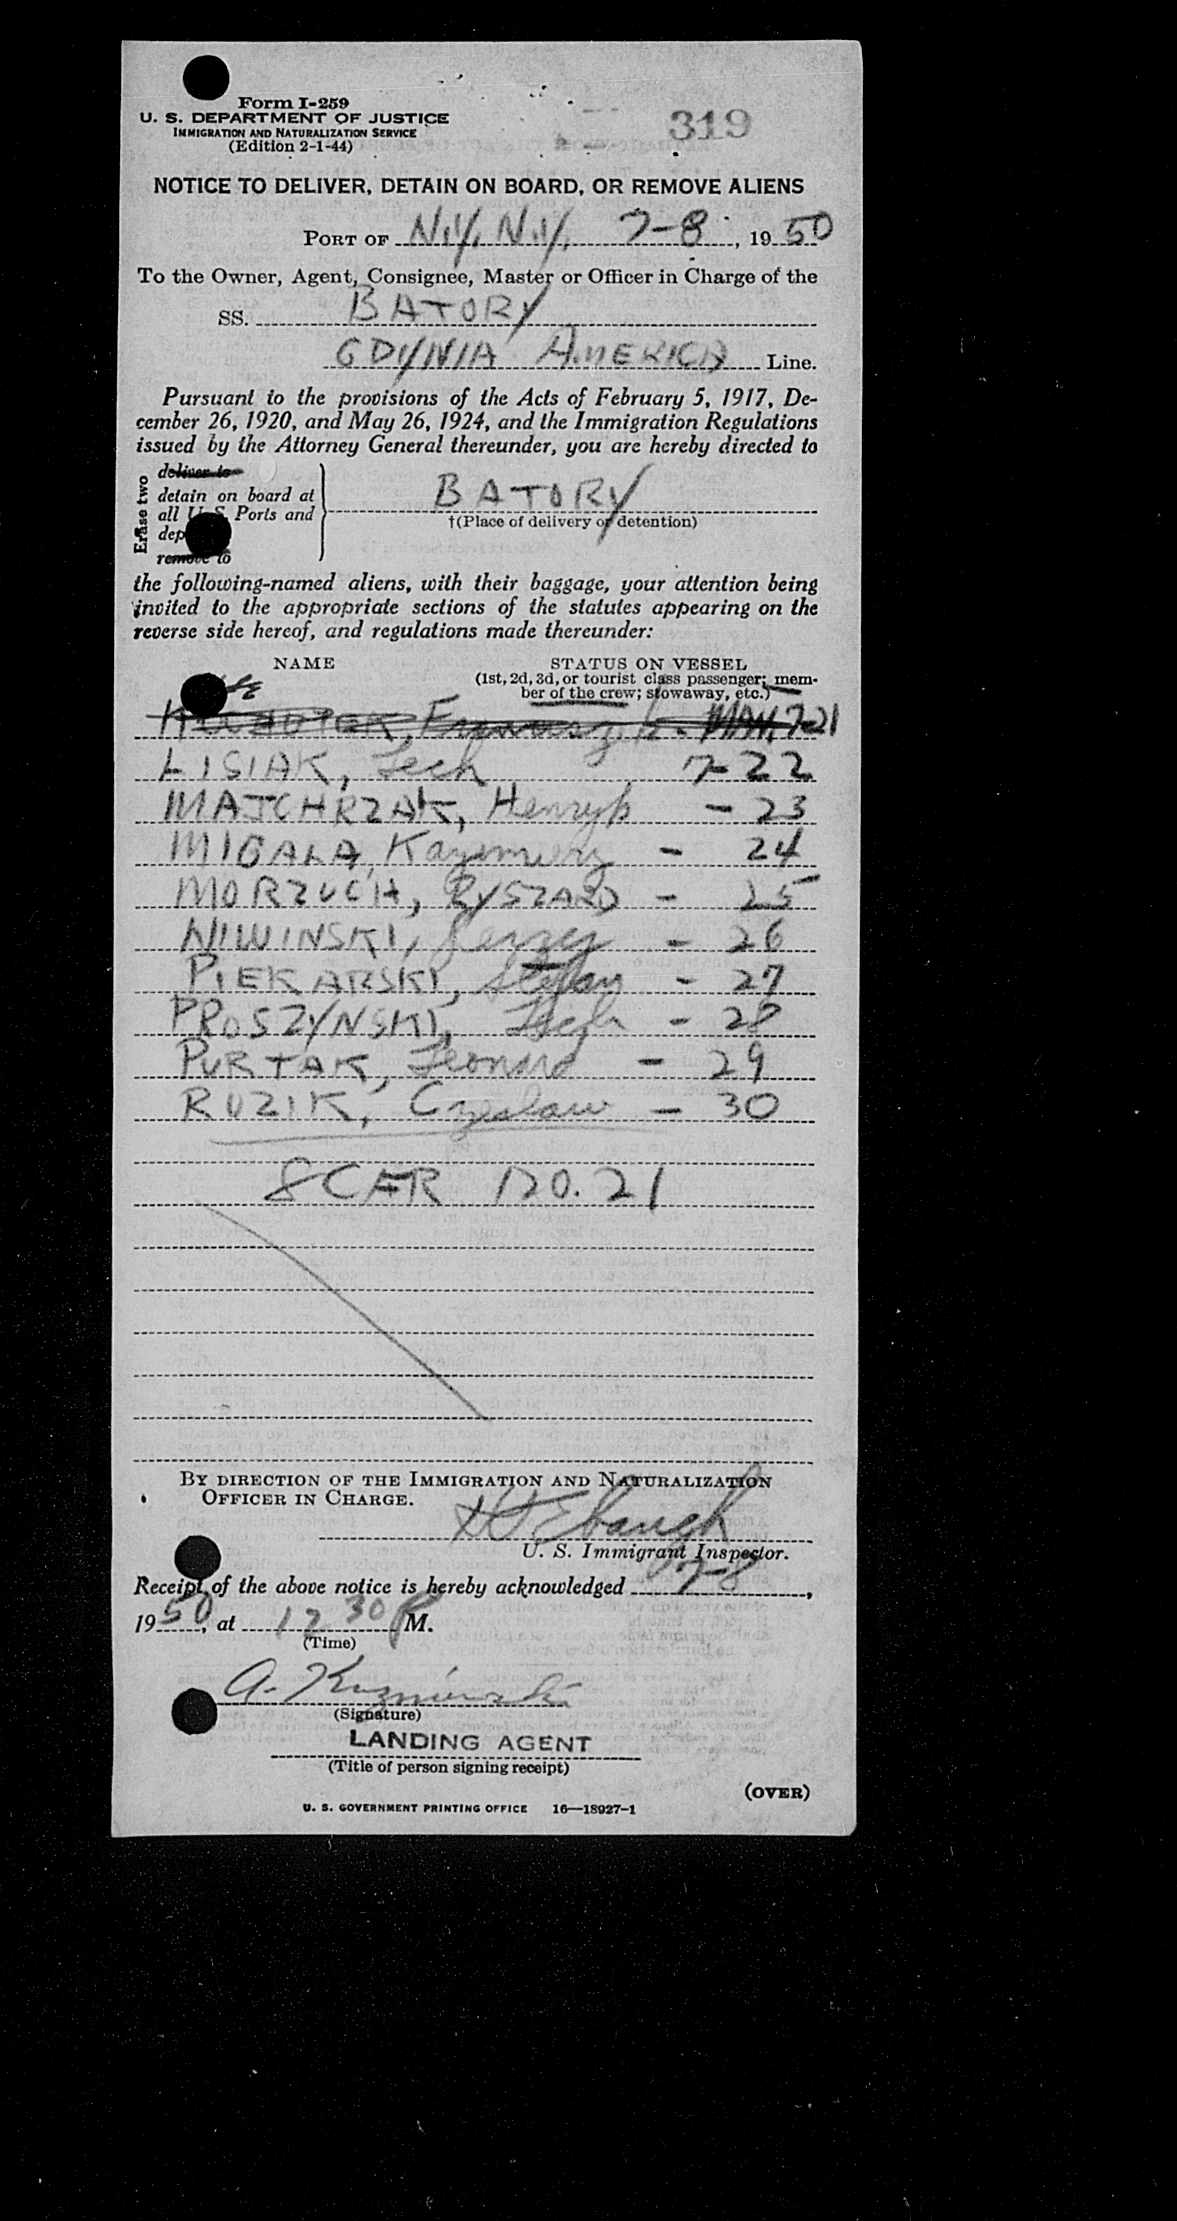 Form I-259
U. S. DEPARTMENT OF JUSTICE
IMMIGRATION AND NATURALIZATION SERVICE
(Edition 2-1-44)
319
NOTICE TO DELIVER, DETAIN ON BOARD, OR REMOVE ALIENS
PORT OF N.Y. N.Y. 7-8, 1950
To the Owner, Agent, Consignee, Master or Officer in Charge of the
SS. BATORY
GDYNIA AMERICA Line.
Pursuant to the provisions of the Acts of February 5, 1917, De-
cember 26, 1920, and May 26, 1924, and the Immigration Regulations
issued by the Attorney General thereunder, you are hereby directed to
Erase two
deliver to
detain on board at
all U. S. Ports and
dep
remove to
BATORY
†(Place of delivery or detention)
the following-named aliens, with their baggage, your attention being
invited to the appropriate sections of the statutes appearing on the
reverse side hereof, and regulations made thereunder:
NAME STATUS ON VESSEL
(1st, 2d, 3d, or tourist class passenger; mem-
ber of the crew; stowaway, etc.)
7-21
LISIAK, Lech 7-22
MAJCHRZAK, Henryk - 23
MIGALA, Kazimierz - 24
MORZUCH, RYSZARD - 25
NIWINSKI, Jerzy - 26
PIEKARSKI, Stefan - 27
PROSZYNSKI, - 28
PURTAK, Leonard - 29
RUZIK, Czeslaw - 30
8 CFR 120.21
BY DIRECTION OF THE IMMIGRATION AND NATURALIZATION
OFFICER IN CHARGE.
Ebaugh
U. S. Immigrant Inspector.
Receipt of the above notice is hereby acknowledged 7-8,
1950, at 12 30 P M.
(Time)
A.
(Signature)
LANDING AGENT
(Title of person signing receipt)
(OVER)
U. S. GOVERNMENT PRINTING OFFICE 16—18927-1